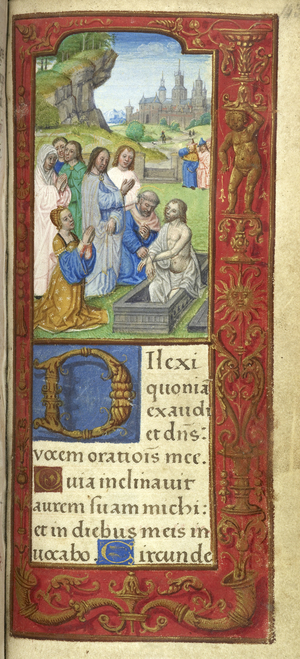 Dilexi
quoniā
exaudi
et dn̄s:
vocem oratiōis mee.
Quia inclinavit
aurem suam michi:
et in diebus meis in
uocabo. Circunde